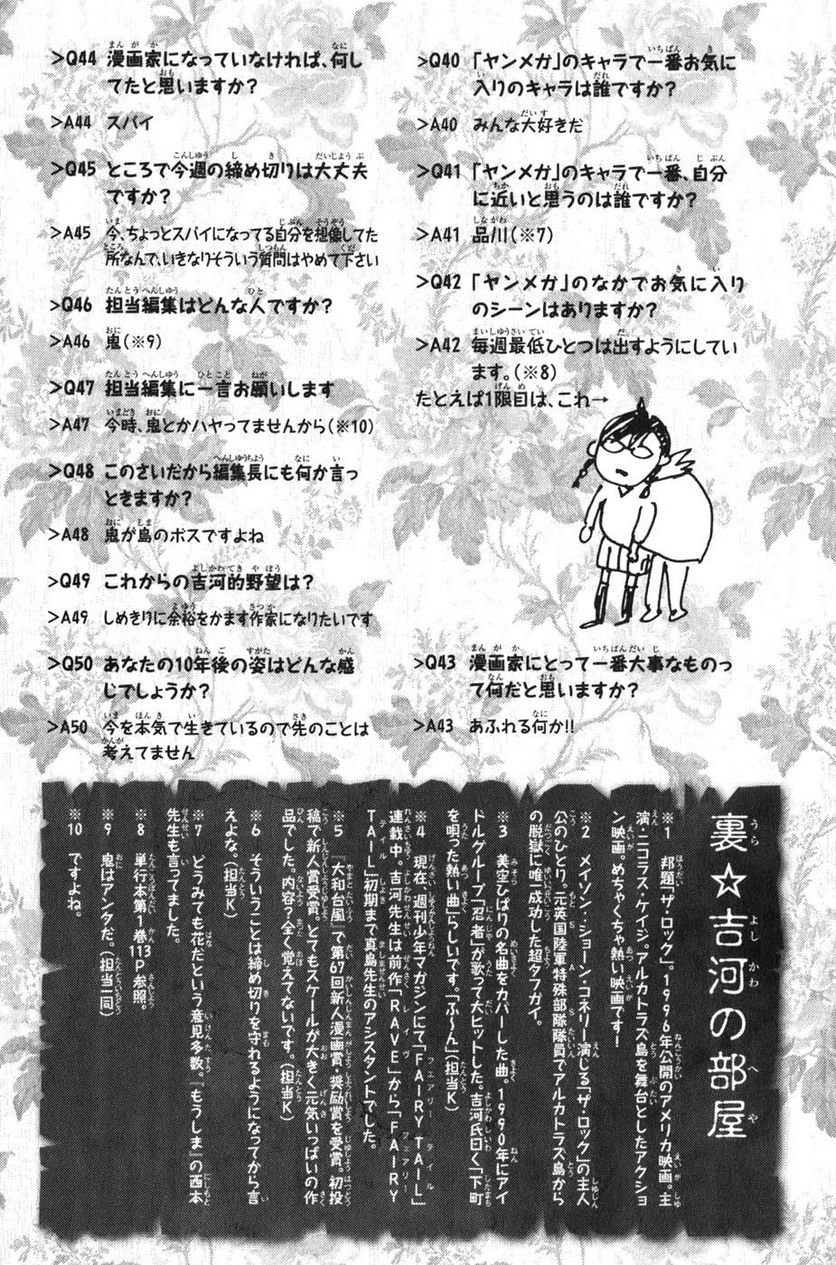 >Q40 「ヤンメガ」のキャラで一番お気に
入りのキャラは誰ですか?
>A40 みんな大好きだ
>Q41 「ヤンメガ」のキャラで一番、自分
に近いと思うのは誰ですか?
>A41 品川(※7)
>Q42 「ヤンメガ」のなかでお気に入り
のシーンはありますか?
>A42 毎週最低ひとつは出すようにしてい
ます。(※8)
たとえば1限目は、これ→
>Q43 漫画家にとって一番大事なものっ
て何だと思いますか?
>A43 あふれる何か!!
>Q44 漫画家になっていなければ、何し
てたと思いますか?
>A44 スパイ
>Q45 ところで今週の締め切りは大丈夫
ですか?
>A45 今、ちょっとスパイになってる自分を想像してた
所なんで、いきなりそういう質問はやめて下さい
>Q46 担当編集はどんな人ですか?
>A46 鬼(※9)
>Q47 担当編集に一言お願いします
>A47 今時、鬼とかハヤってませんから(※10)
>Q48 このさいだから編集長にも何か言っ
ときますか?
>A48 鬼が島のボスですよね
>Q49 これからの吉河的野望は?
>A49 しめきりに余裕をかます作家になりたいです
>Q50 あなたの10年後の姿はどんな感
じでしょうか?
>A50 今を本気で生きているので先のことは
考えてません
裏☆吉河の部屋
※1 邦題『ザ・ロック』。1996年公開のアメリカ映画。主
演・ニコラス・ケイジ。アルカトラズ島を舞台としたアクショ
ン映画。めちゃくちゃ熱い映画です!
※2 メイソン:ショーン・コネリー演じる『ザ・ロック』の主人
公のひとり。元英国陸軍特殊部隊隊員でアルカトラズ島から
の脱獄に唯一成功した超タフガイ。
※3 美空ひばりの名曲をカバーした曲。1990年にアイ
ドルグループ「忍者」が歌って大ヒットした。吉河氏曰く「下町
を唄った熱い曲」らしいです。「ふ〜ん」(担当K)
※4 現在、週刊少年マガジンにて「FAIRY TAIL」
連載中。吉河先生は前作「RAVE」から「FAIRY
TAIL」初期まで真島先生のアシスタントでした。
※5 『大和台風』で第67回新人漫画賞・奨励賞を受賞。初投
稿で新人賞受賞。とてもスケールが大きく元気いっぱいの作
品でした。内容?全く覚えてないです。(担当K)
※6 そういうことは締め切りを守れるようになってから言
えよな。(担当K)
※7 どうみても花だという意見多数。『もうしま』の西本
先生も言ってました。
※8 単行本第1巻113P参照。
※9 鬼はアンタだ。(担当一同)
※10 ですよね。